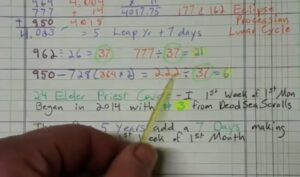 964 4,004
777 4017.75 177 & 162 Eclipse
950 4018 Precession
4,033 = 5 Leap Yr + 7 days Lunar Cycle
962 ÷ 26 = 37 777 ÷ 37 = 21
950 - 728 (364 x 2) = 222 ÷ 37 = 6
24 Elder Priest - I 1st Week of 1st Mon
Began in 2014 with # 3 from Dead Sea Scrolls
5 Years add a 7 Days making
1st Week of 1st Month